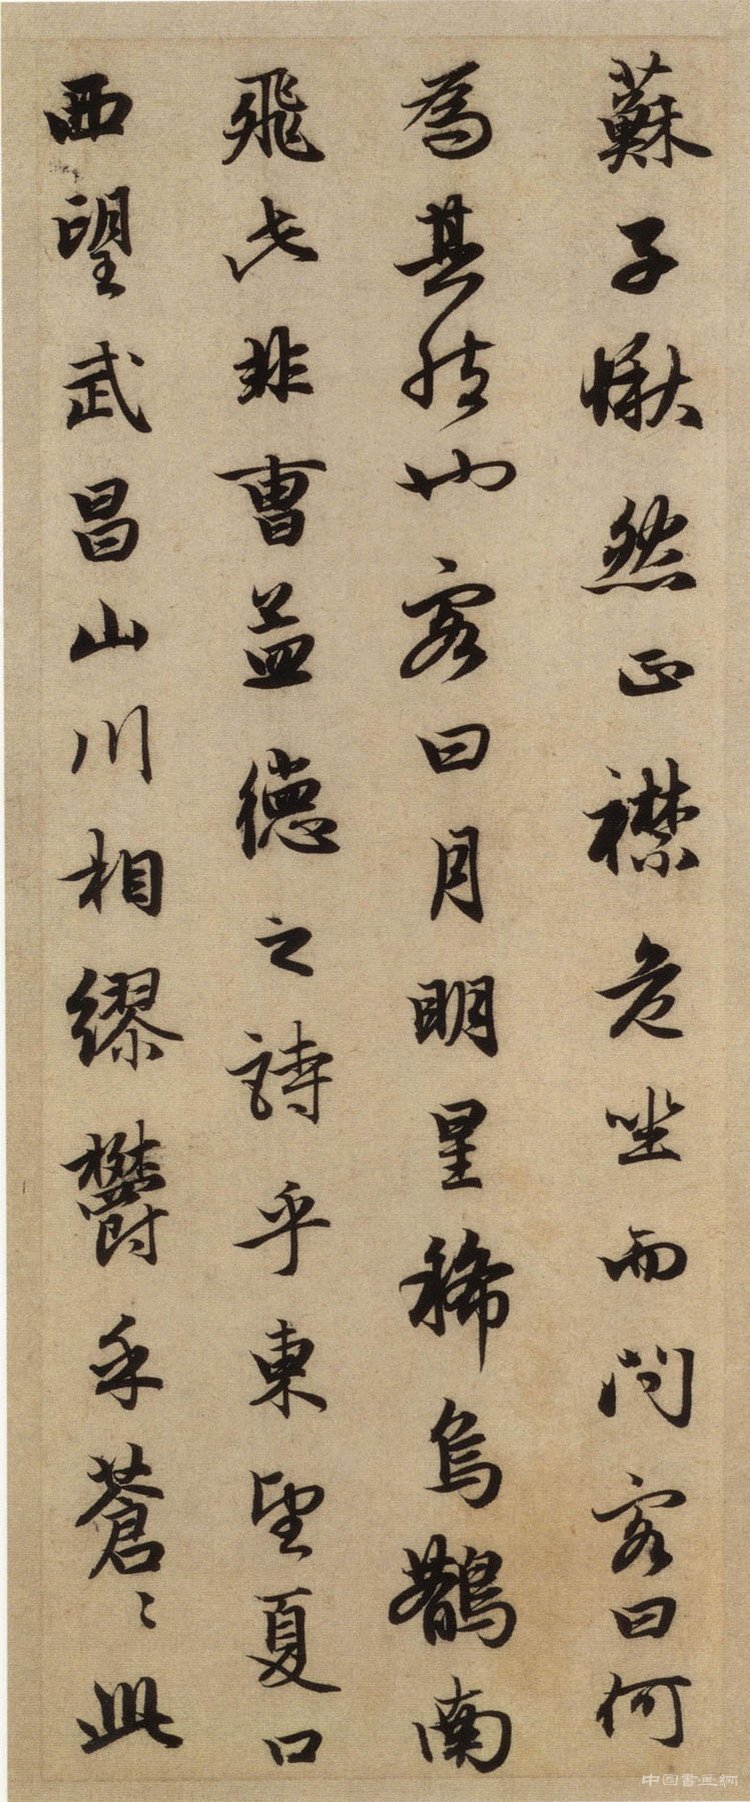 蘇子愀然正襟危坐而問客曰何
為其然也客曰月明星稀烏鵲南
飛此非曹孟德之詩乎東望夏口
西望武昌山川相繆鬱乎蒼〻此
中国書画網